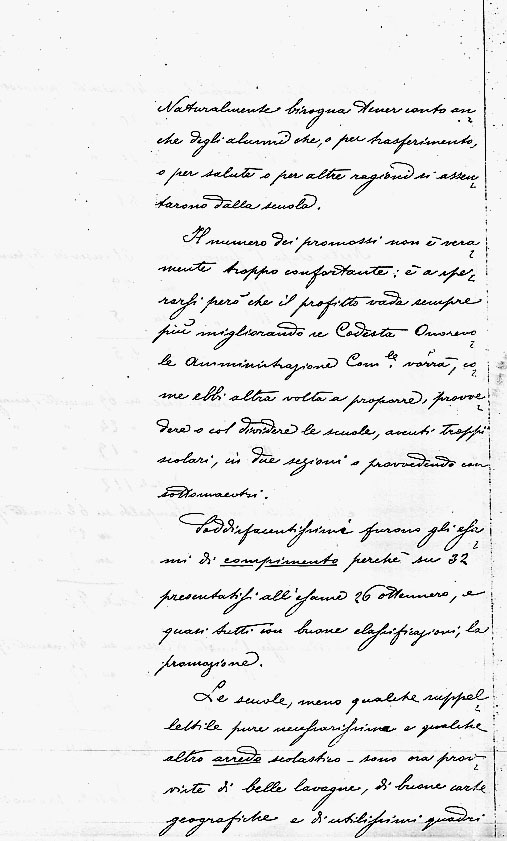 Naturalmente bisogna tener conto an=
che degli alunni che, o per trasferimento,
o per salute o per altre ragioni si assen=
tarono dalla scuola.
Il numero dei promossi non è vera=
mente troppo confortante; è a spe=
rarsi però che il profitto vada sempre
più migliorando se Codesta Onorevo=
le Amministrazione Com.le vorrà, co=
me ebbi altra volta a proporre, provve=
dere o col dividere le scuole, aventi troppi
scolari, in due sezioni o provvedendo con
sottomaestri.
Soddisfacentissimi furono gli esa=
mi di compimento perchè su 32
presentatisi all'esame 26 ottennero, e
quasi tutti con buone classificazioni, la
promozione.
Le scuole, meno qualche suppel=
lettile pure necessarissima e qualche
altro arredo scolastico - sono ora prov=
viste di belle lavagne, di buone carte
geografiche e di utilissimi quadri